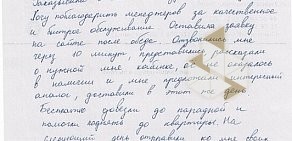 Хочу поблагодарить менеджеров за качественное
и быстрое обслуживание. Оставила заявку
на сайте после обеда. Отзвонились мне
через 10 минут, представились, рассказали
о нужной мне не оказалось
в наличии и мне предложили интересный
аналог, доставили в этот же день.
Бесплатно довезли до парадной и
помогли поднять до квартиры. На
следующий день отправили ко мне своих